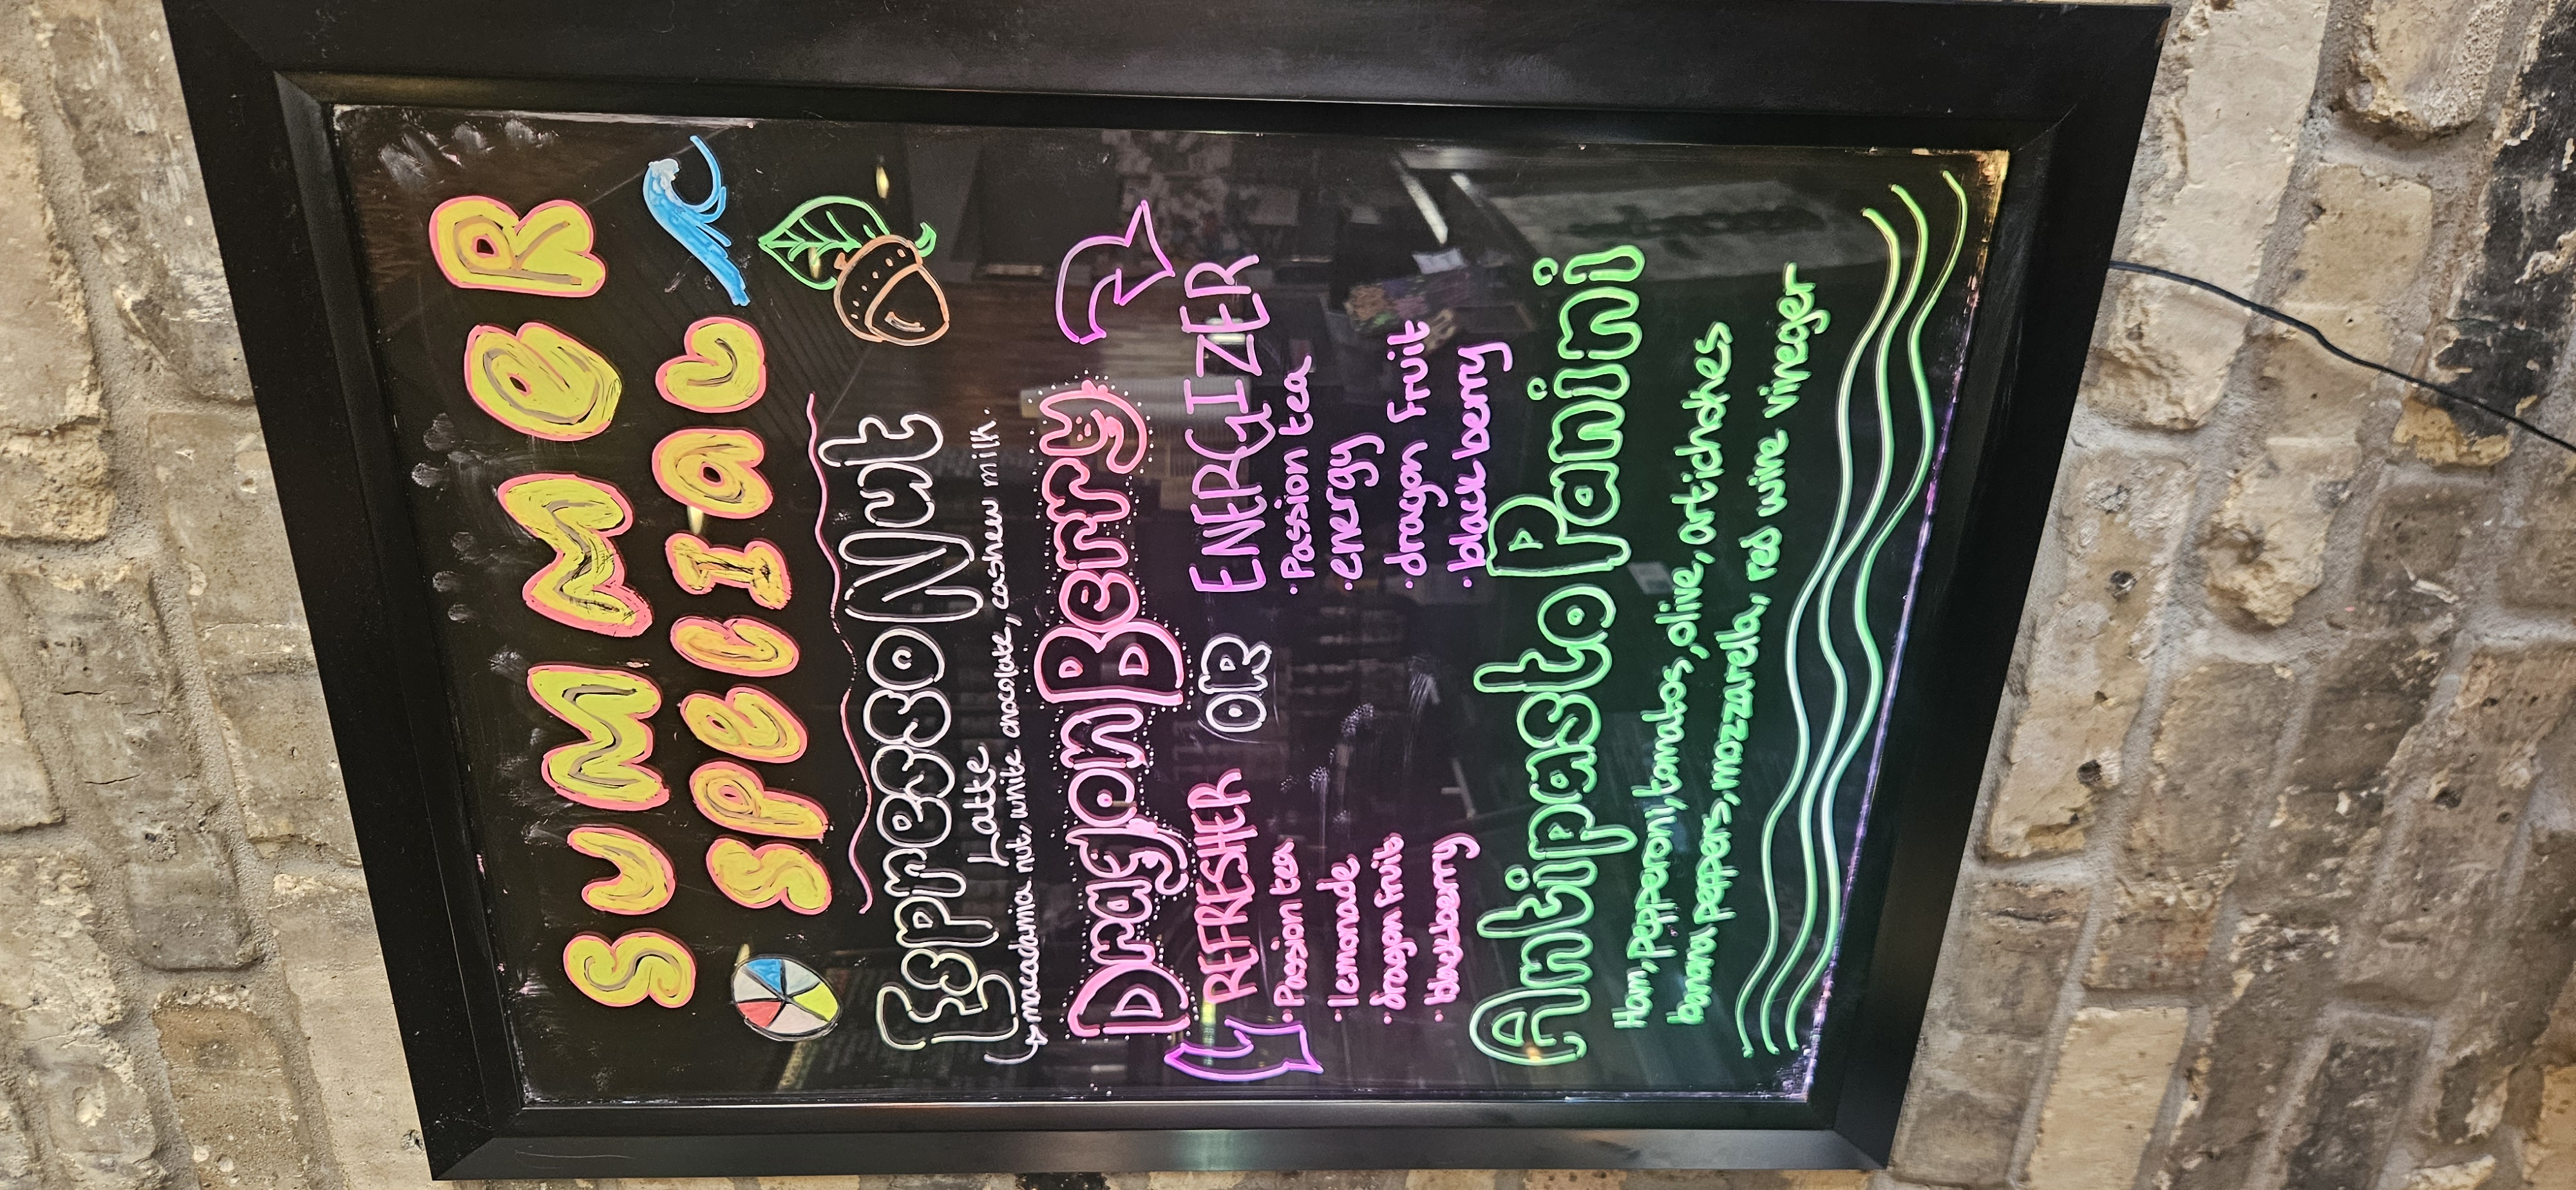 SUMMER
SPECIAL
Espresso Nut
Latte
macadamia nut, white chocolate, cashew milk.
Dragon Berry
REFRESHER OR ENERGIZER
· Passion tea
· lemonade
· dragon fruit
· blackberry
· Passion tea
· energy
· dragon fruit
· blackberry
Antipasto Panini
Ham, pepperoni, tomatos, olive, artichokes
banana peppers, mozzarella, red wine vineger